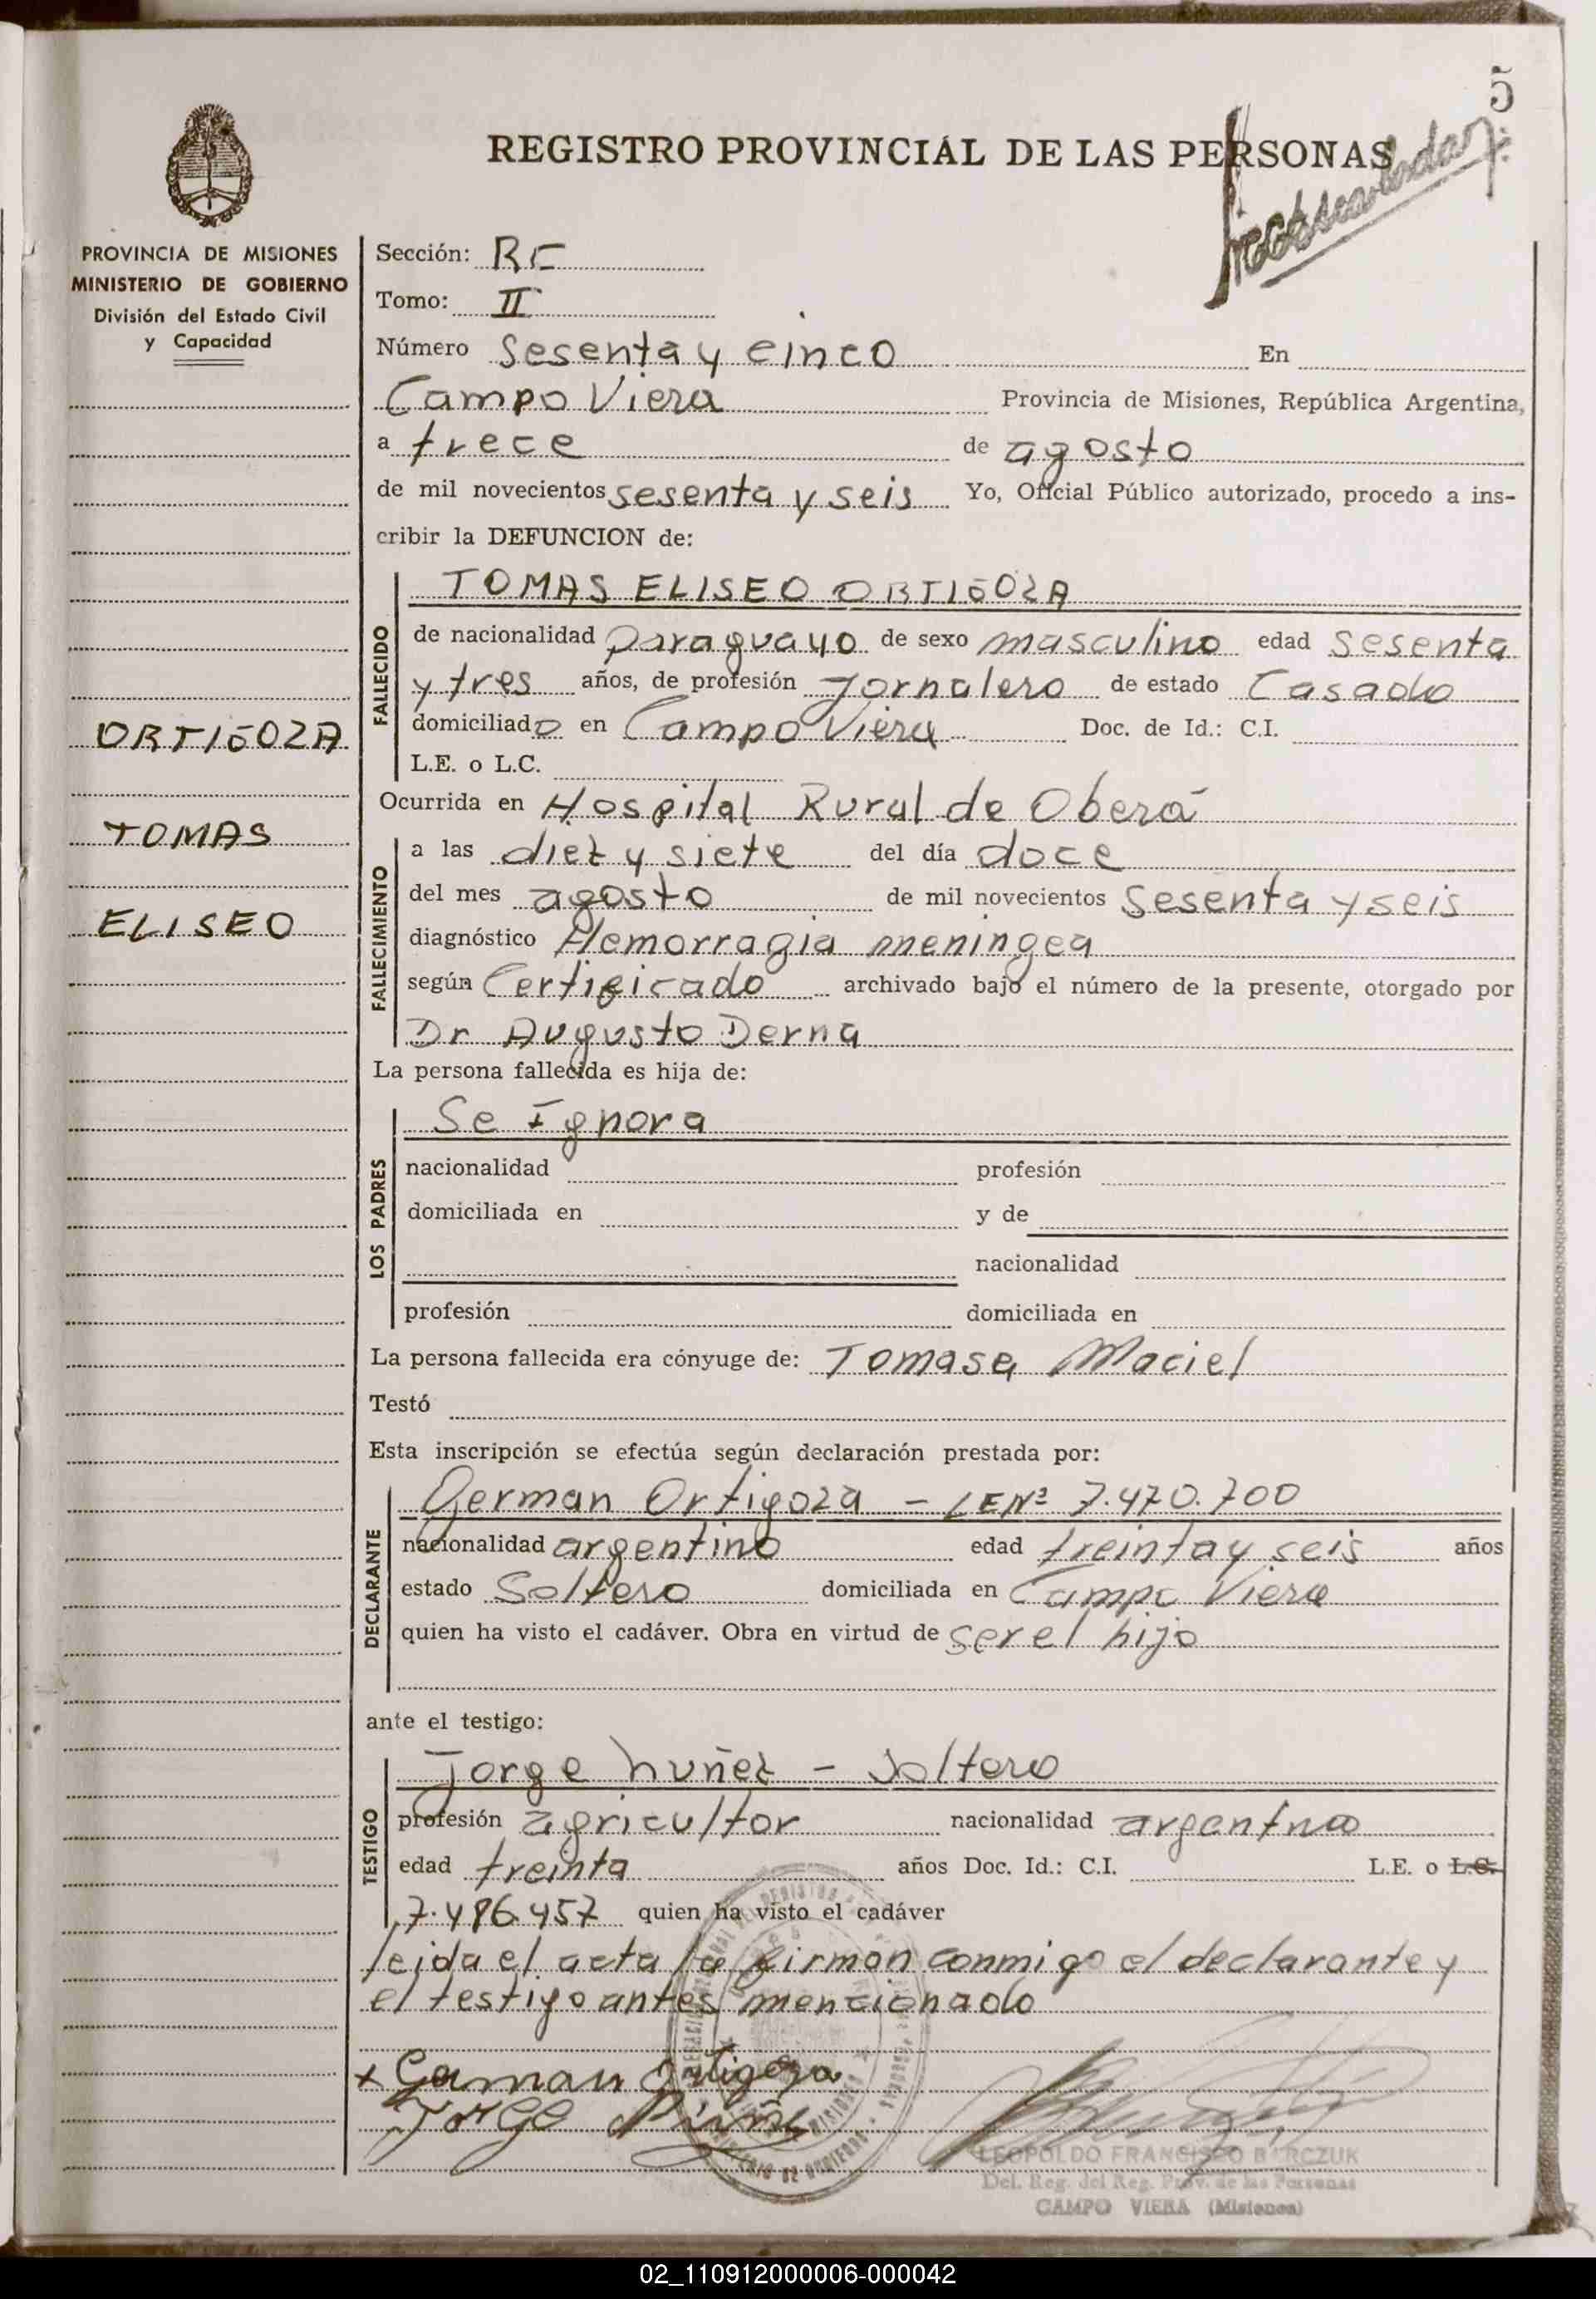 5
REGISTRO PROVINCIAL DE LAS PERSONAS
PROVINCIA DE MISIONES
MINISTERIO DE GOBIERNO
División del Estado Civil
y Capacidad
ORTIGOZA
TOMAS
ELISEO
Sección: RC
Tomo: II
Número Sesenta y cinco En
Campo Viera Provincia de Misiones, República Argentina,
a trece de agosto
de mil novecientos sesenta y seis Yo, Oficial Público autorizado, procedo a ins-
cribir la DEFUNCION de:
FALLECIDO
TOMAS ELISEO ORTIGOZA
de nacionalidad paraguayo de sexo masculino edad sesenta
y tres años, de profesión jornalero de estado Casado
domiciliado en Campo Viera Doc. de Id.: C.I.
L.E. o L.C.
Ocurrida en Hospital Rural de Oberá
FALLECIMIENTO
a las diez y siete del día doce
del mes agosto de mil novecientos sesenta y seis
diagnóstico Hemorragia meningea
según Certificado archivado bajo el número de la presente, otorgado por
Dr Augusto Derna
La persona fallecida es hija de:
LOS PADRES
Se Ignora
nacionalidad profesión
domiciliada en y de
nacionalidad
profesión domiciliada en
La persona fallecida era cónyuge de: Tomasa Maciel
Testó
Esta inscripción se efectúa según declaración prestada por:
DECLARANTE
German Ortigoza - LE Nº 7.470.700
nacionalidad argentino edad treinta y seis años
estado Soltero domiciliada en Campo Viera
quien ha visto el cadáver. Obra en virtud de ser el hijo
ante el testigo:
TESTIGO
Jorge Nuñez - Soltero
profesión agricultor nacionalidad argentino
edad treinta años Doc. Id.: C.I. L.E. o L.C.
7.486.457 quien ha visto el cadáver
leida el acta la firman conmigo el declarante y
el testigo antes mencionado
x German Ortigoza
Jorge Nuñe
LEOPOLDO FRANCISCO BARCZUK
Del. Reg. del Reg. Prov. de las Personas
CAMPO VIERA (Misiones)
02_110912000006-000042